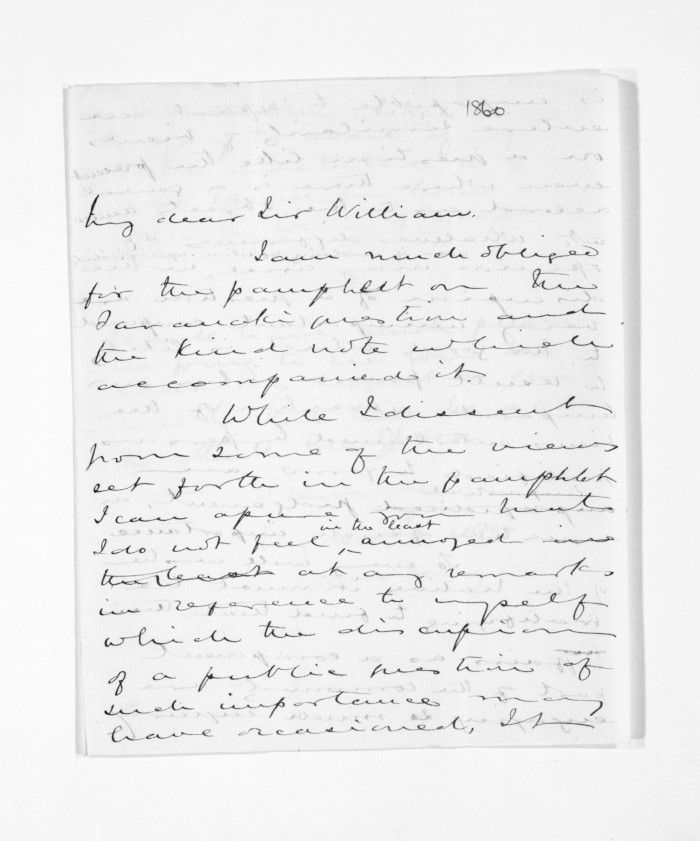 1860
My dear Sir William.
I am much obliged
for the pamphlet on the
Taranaki question and
the kind note which
accompanied it.
While I dissent
from some of the views
set forth in the pamphlet
I can assure you that
in the least
I do not feel annoyed in
the least at any remarks
in reference to myself
which the discussion
of a public question of
such importance may
have occasioned, It